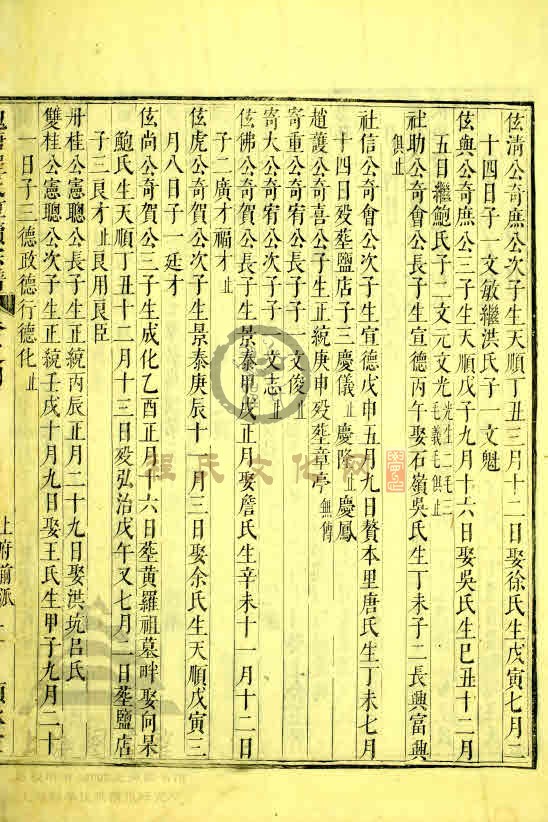 伭淸公奇庶公次子生天順丁丑三月十二日娶徐氏生戊寅七月二
十四日子一文敏繼洪氏子一文魁
伭與公奇庶公三子生天順戊子九月十六日娶吳氏生巳丑十二月
五日繼鮑氏子二文元文光
社助公奇會公長子生宣德丙午娶石嶺吳氏生丁未子二長興富興
俱止
社信公奇會公次子生宣德戊申五月九日贅本里唐氏生丁未七月
十四日歿塟鹽店子三慶儀止慶隆止慶鳳
趙護公奇喜公子生正統庚申歿塟章亭無傳
寄重公奇宥公長子子一文俊止
寄大公奇宥公次子子一文志止
伭佛公奇賀公長子生景泰甲戌正月娶詹氏生辛未十一月十二日
子二廣才福才止
伭虎公奇賀公次子生景泰庚辰十一月三日娶余氏生天順戊寅三
月八日子一廷才
伭尚公奇賀公三子生成化乙酉正月十六日塟黃羅祖墓畔娶向杲
鮑氏生天順丁丑十二月十三日歿弘治戊午又七月二日塟鹽店
子三艮才止艮用艮臣
丹桂公憲聰公長子生正統丙辰正月二十九日娶洪坑呂氏
雙桂公憲聰公次子生正統壬戌十月九日娶王氏生甲子九月二十
一日子三德政德行德化止
程氏文化网